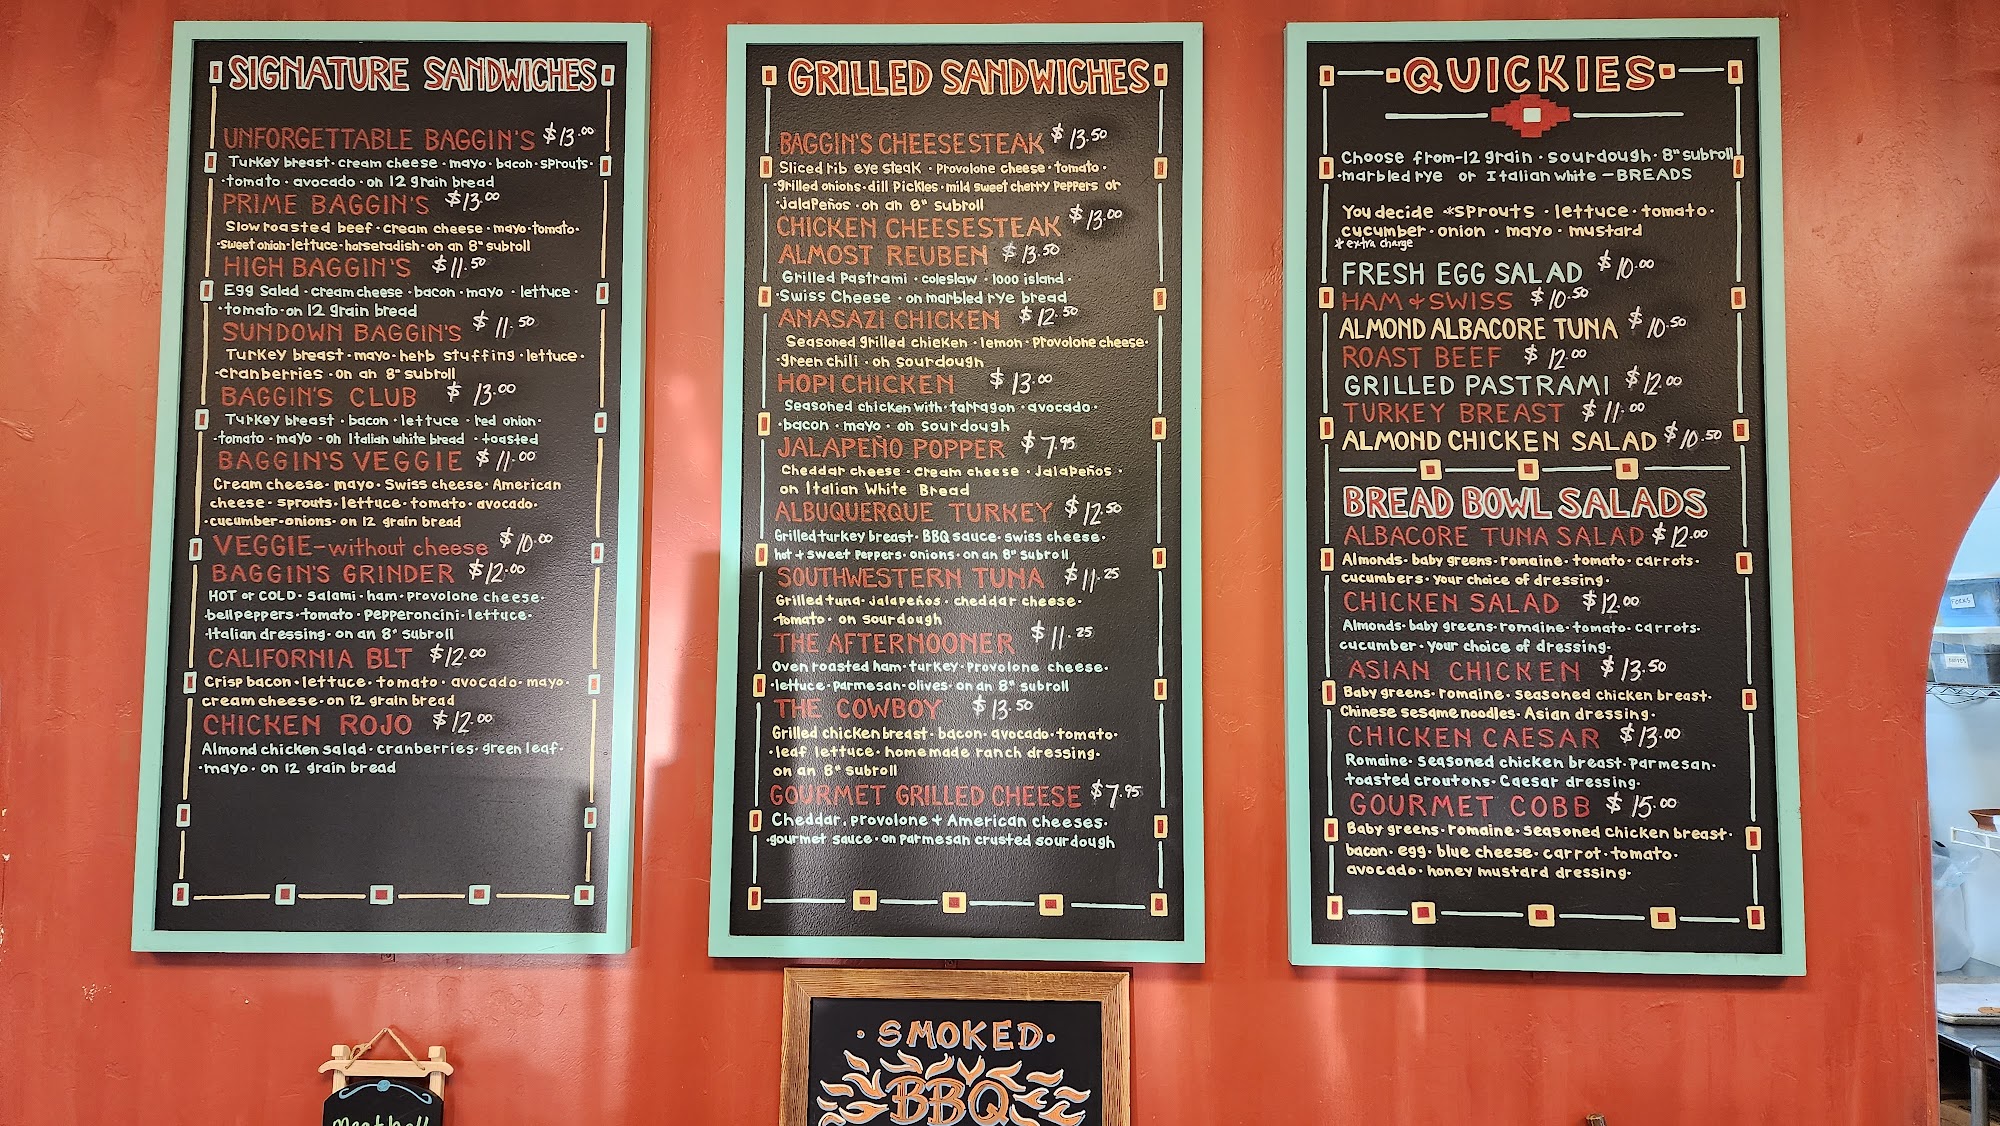 SIGNATURE SANDWICHES
UNFORGETTABLE BAGGIN'S $13.00
Turkey breast · cream cheese · mayo · bacon · sprouts ·
· tomato · avocado · on 12 grain bread
PRIME BAGGIN'S $13.00
Slow roasted beef · cream cheese · mayo · tomato ·
· sweet onion · lettuce · horseradish · on an 8" subroll
HIGH BAGGIN'S $11.50
Egg Salad · cream cheese · bacon · mayo · lettuce ·
· tomato · on 12 grain bread
SUNDOWN BAGGIN'S $11.50
Turkey breast · mayo · herb stuffing · lettuce ·
· cranberries · on an 8" subroll
BAGGIN'S CLUB $13.00
Turkey breast · bacon · lettuce · red onion ·
· tomato · mayo · on Italian white bread · toasted
BAGGIN'S VEGGIE $11.00
Cream cheese · mayo · Swiss cheese · American
cheese · sprouts · lettuce · tomato · avocado ·
· cucumber · onions · on 12 grain bread
VEGGIE - without cheese $10.00
BAGGIN'S GRINDER $12.00
HOT or COLD · Salami · ham · Provolone cheese ·
bell peppers · tomato · Pepperoncini · lettuce ·
· Italian dressing · on an 8" subroll
CALIFORNIA BLT $12.00
Crisp bacon · lettuce · tomato · avocado · mayo ·
cream cheese · on 12 grain bread
CHICKEN ROJO $12.00
Almond chicken salad · cranberries · green leaf ·
· mayo · on 12 grain bread
GRILLED SANDWICHES
BAGGIN'S CHEESESTEAK $13.50
Sliced rib eye steak · Provolone cheese · tomato ·
· grilled onions · dill Pickles · mild sweet cherry Peppers or
· jalapeños · on an 8" subroll
CHICKEN CHEESESTEAK $13.00
ALMOST REUBEN $13.50
Grilled Pastrami · coleslaw · 1000 island ·
· Swiss Cheese · on marbled rye bread
ANASAZI CHICKEN $12.50
Seasoned grilled chicken · lemon · Provolone cheese ·
· green chili · on sourdough
HOPI CHICKEN $13.00
Seasoned chicken with · tarragon · avocado ·
· bacon · mayo · on sourdough
JALAPEÑO POPPER $7.95
Cheddar cheese · Cream cheese · Jalapeños ·
on Italian White Bread
ALBUQUERQUE TURKEY $12.50
Grilled turkey breast · BBQ sauce · swiss cheese ·
hot + sweet Peppers · onions · on an 8" subroll
SOUTHWESTERN TUNA $11.25
Grilled tuna · jalapeños · cheddar cheese ·
tomato · on sourdough
THE AFTERNOONER $11.25
Oven roasted ham · turkey · Provolone cheese ·
· lettuce · parmesan · olives · on an 8" subroll
THE COWBOY $13.50
Grilled chicken breast · bacon · avocado · tomato ·
· leaf lettuce · homemade ranch dressing ·
on an 8" subroll
GOURMET GRILLED CHEESE $7.95
Cheddar, provolone + American cheeses ·
· gourmet sauce · on Parmesan crusted sourdough
QUICKIES
Choose from - 12 grain · sourdough · 8" subroll
· marbled rye or Italian white - BREADS
You decide * sprouts · lettuce · tomato ·
cucumber · onion · mayo · mustard
* extra charge
FRESH EGG SALAD $10.00
HAM + SWISS $10.50
ALMOND ALBACORE TUNA $10.50
ROAST BEEF $12.00
GRILLED PASTRAMI $12.00
TURKEY BREAST $11.00
ALMOND CHICKEN SALAD $10.50
BREAD BOWL SALADS
ALBACORE TUNA SALAD $12.00
Almonds · baby greens · romaine · tomato · carrots ·
cucumbers · your choice of dressing ·
CHICKEN SALAD $12.00
Almonds · baby greens · romaine · tomato · carrots ·
cucumber · your choice of dressing ·
ASIAN CHICKEN $13.50
Baby greens · romaine · seasoned chicken breast ·
Chinese sesame noodles · Asian dressing ·
CHICKEN CAESAR $13.00
Romaine · seasoned chicken breast · parmesan ·
toasted croutons · Caesar dressing ·
GOURMET COBB $15.00
Baby greens · romaine · seasoned chicken breast ·
bacon · egg · blue cheese · carrot · tomato ·
avocado · honey mustard dressing ·
· SMOKED ·
BBQ